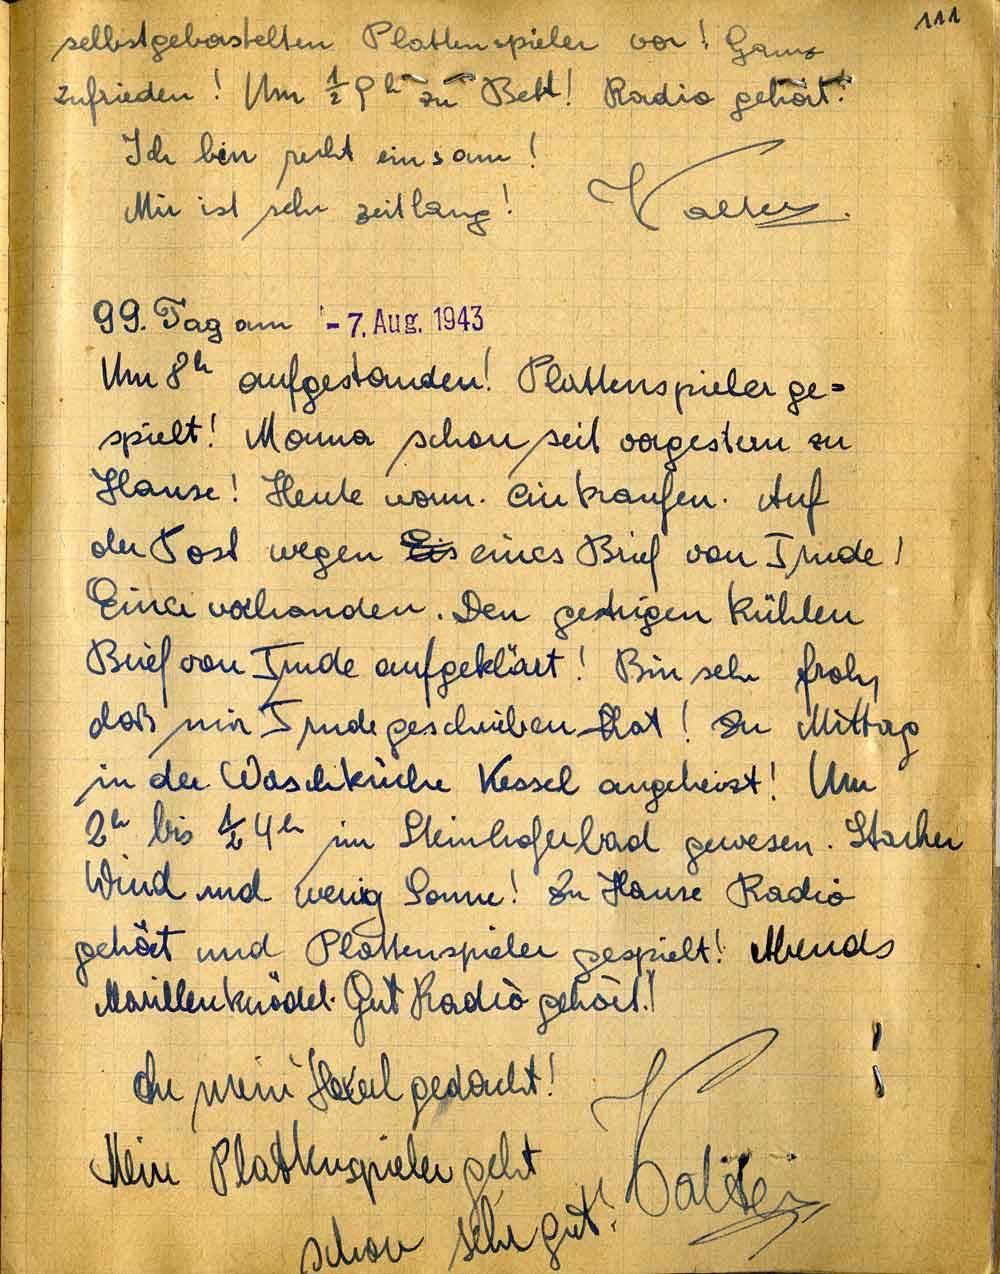 111
selbstgebastelten Plattenspieler vor! Ganz
zufrieden! Um ½9h zu Bett! Radio gehört!
Ich bin recht einsam!
Mir ist sehr zeitlang! Walter.
99. Tag am - 7. Aug. 1943
Um 8h aufgestanden! Plattenspieler ge=
spielt! Mama schon seit vorgestern zu
Hause! Heute vorm. einkaufen. Auf
der Post wegen eines Brief von Trude!
Einer vorhanden. Den gestrigen kühlen
Brief von Trude aufgeklärt! Bin sehr froh,
daß mir Trude geschrieben hat! Zu Mittag
in der Waschküche Kessel angeheizt! Um
2h bis ½4h im Steinhoferbad gewesen. Starker
Wind und wenig Sonne! Zu Hause Radio
gehört und Plattenspieler gespielt! Abends
Marillenknödel. Gut Radio gehört!
An mein Hexerl gedacht!
Mein Plattenspieler geht
schon sehr gut! Walter